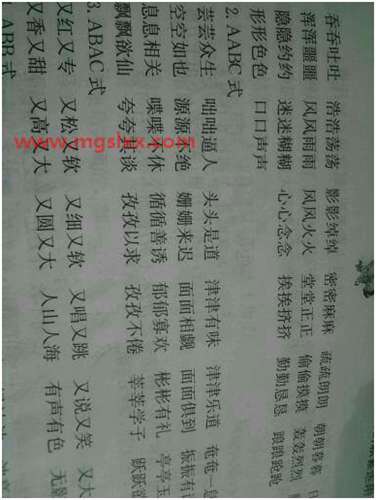 吞吞吐吐 浩浩荡荡 影影绰绰 密密麻麻 疏疏朗朗 朝朝暮暮
浑浑噩噩 风风雨雨 风风火火 堂堂正正 偷偷摸摸 轰轰烈烈
隐隐约约 迷迷糊糊 心心念念 挨挨挤挤 勤勤恳恳
形形色色 口口声声
2. AABC 式
芸芸众生 咄咄逼人 头头是道 津津有味 津津乐道 奄奄一
空空如也 源源不绝 姗姗来迟 面面相觑 面面俱到 振振有
息息相关 喋喋不休 循循善诱 郁郁寡欢 彬彬有礼 亭亭玉
飘飘欲仙 夸夸其谈 孜孜以求 孜孜不倦 莘莘学子 跃跃
3. ABAC 式
又红又专 又松又软 又细又软 又唱又跳 又说又笑 又大
又香又甜 又高又大 又圆又大 人山人海 有声有色 无影
ABB 式